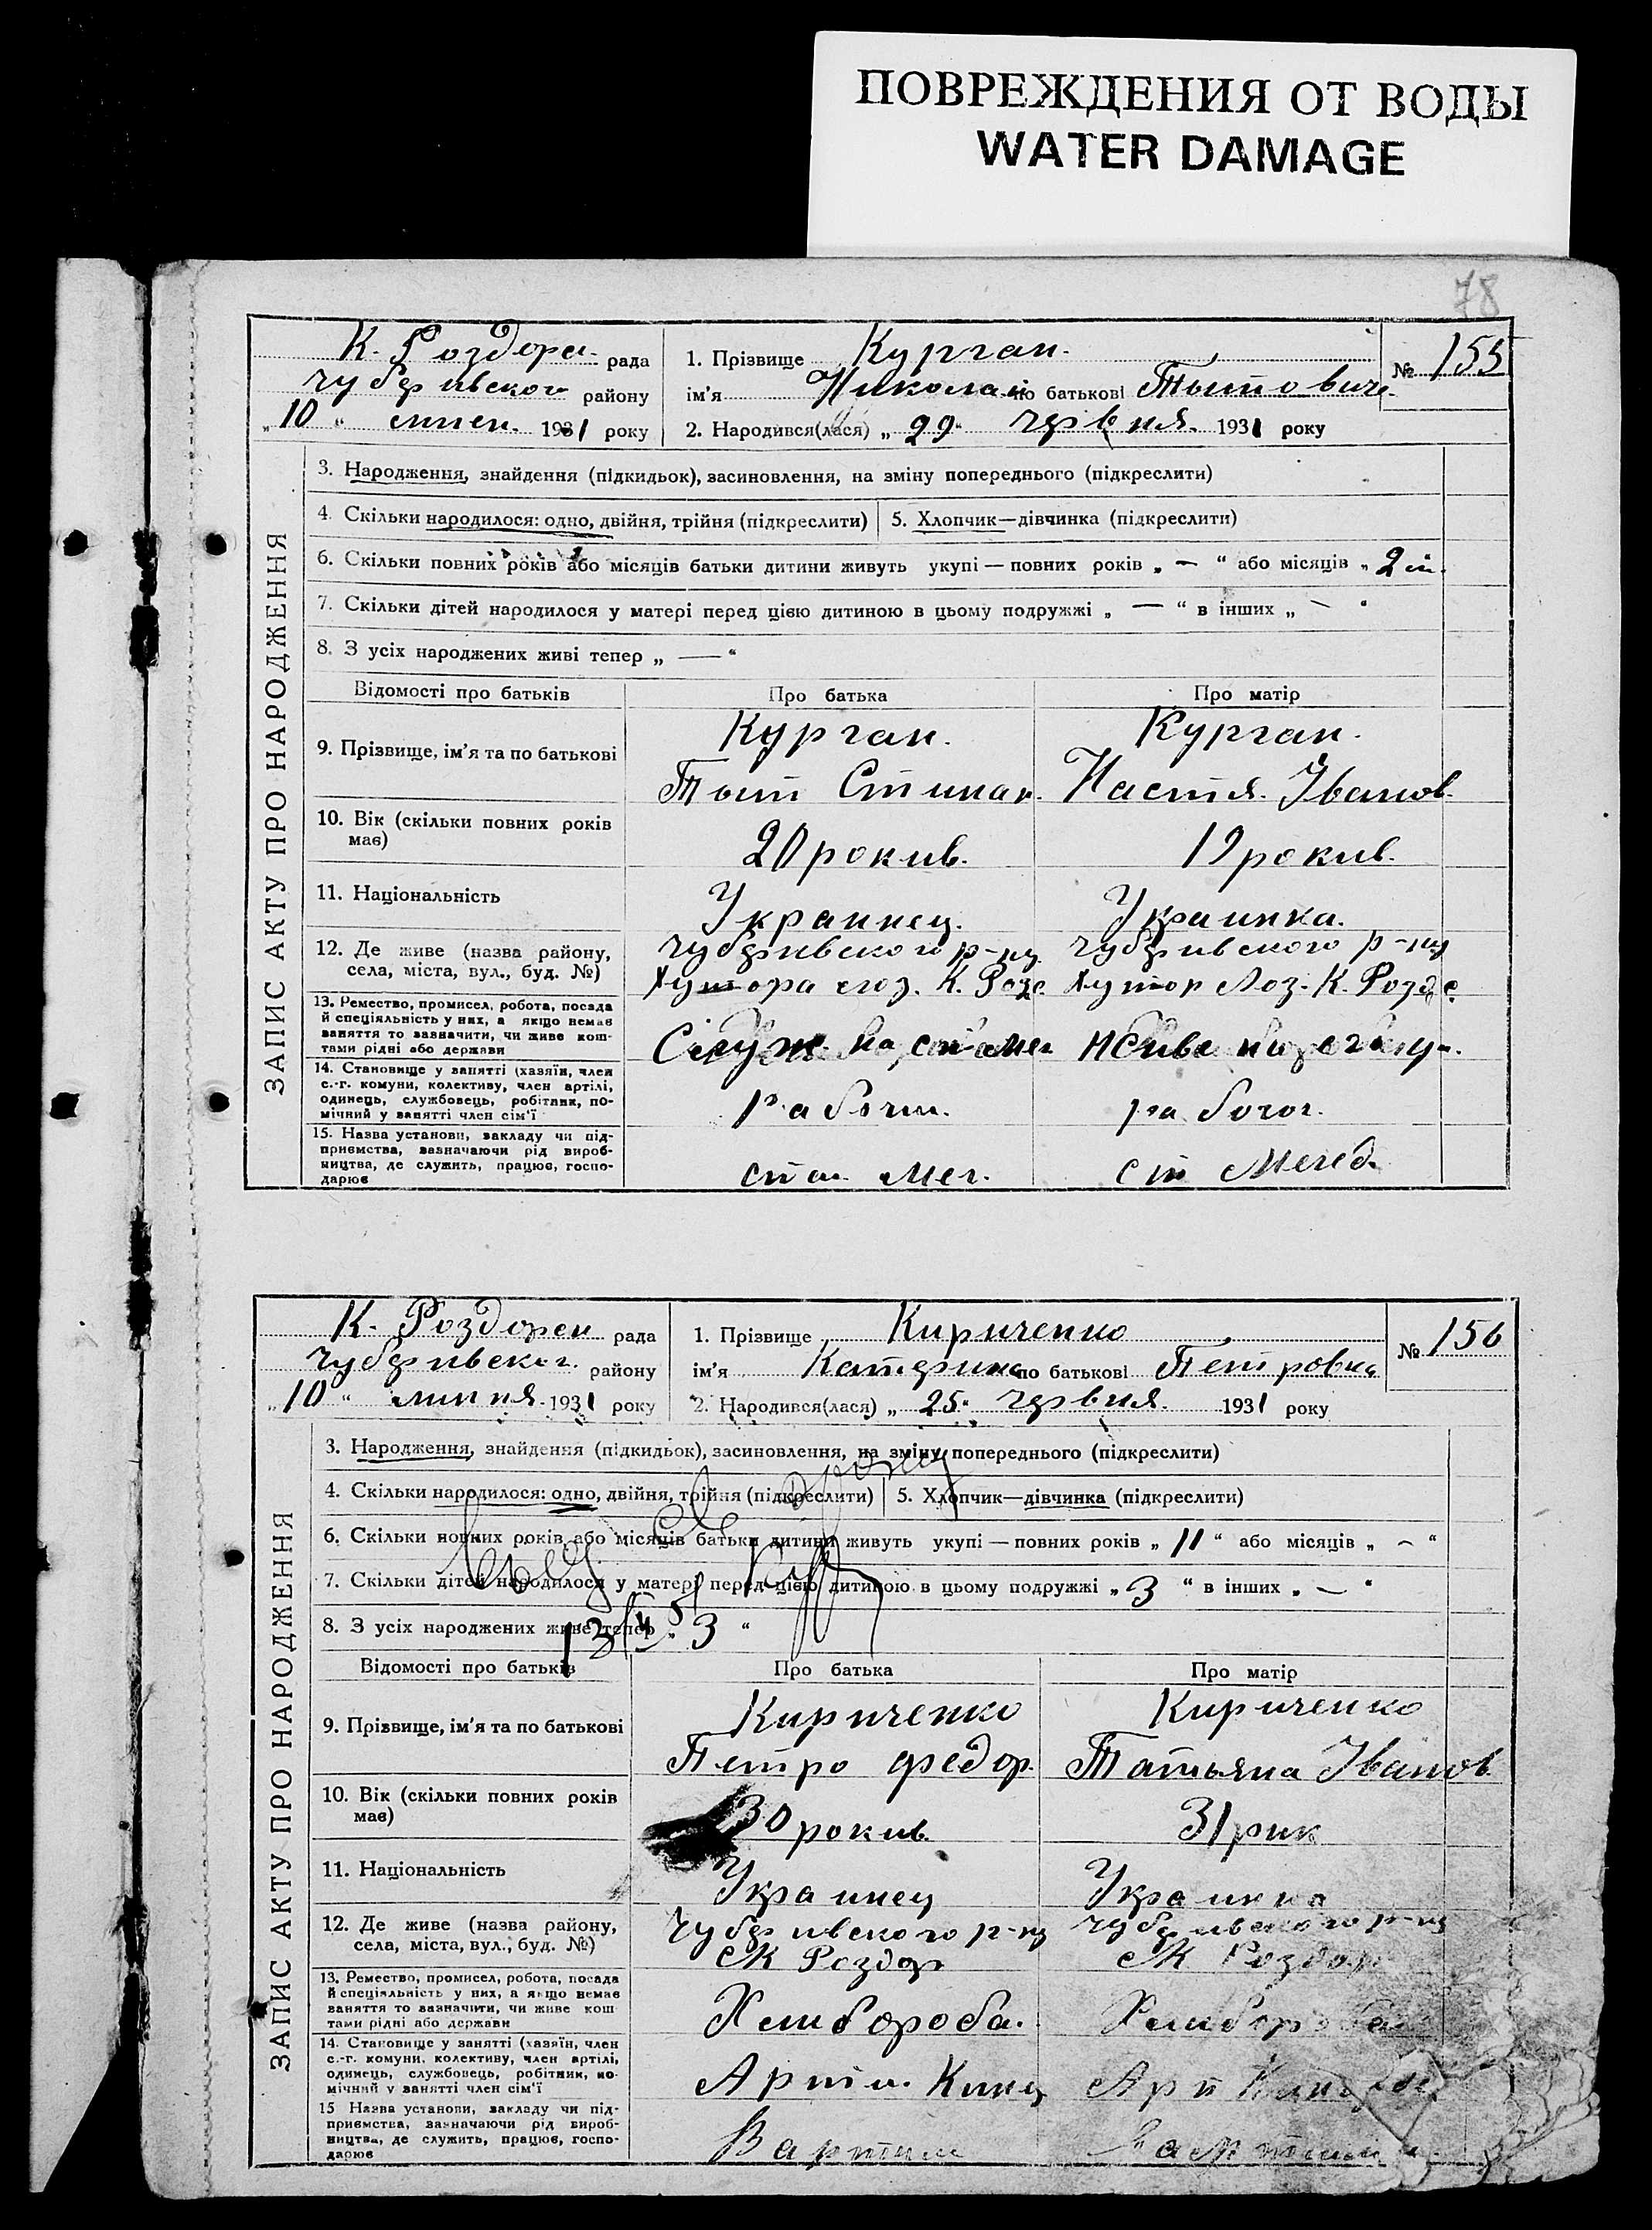 ПОВРЕЖДЕНИЯ ОТ ВОДЫ
WATER DAMAGE
78
К. Роздори рада
Чубарівского району
„10“ липн. 1931 року
1. Прізвище Курган.
ім'я Николай по батькові Тытович.
2. Народився(лася) „29“ червня. 1931 року
№ 155
ЗАПИС АКТУ ПРО НАРОДЖЕННЯ
3. Народження, знайдення (підкидьок), засиновлення, на зміну попереднього (підкреслити)
4. Скільки народилося: одно, двійня, трійня (підкреслити)
5. Хлопчик—дівчинка (підкреслити)
6. Скільки повних років або місяців батьки дитини живуть укупі — повних років „ — “ або місяців „ 2 м.
7. Скільки дітей народилося у матері перед цією дитиною в цьому подружжі „ — “ в інших „ — “
8. З усіх народжених живі тепер „ — “
Відомості про батьків
Про батька
Про матір
9. Прізвище, ім'я та по батькові
Курган.
Тыт Степан.
Курган.
Настя. Іванов.
10. Вік (скільки повних років має)
20 рокив.
19 рокив.
11. Національність
Украинец.
Украинка.
12. Де живе (назва району, села, міста, вул., буд. №)
Чубаривского р-ну
Хутора Лоз. К. Розд.
Чубаривского р-ну
Хутор Лоз. К. Розд.
13. Ремество, промисел, робота, посада
й спеціяльність у них, а якщо немає
заняття то зазначити, чи живе кош-
тами рідні або держави
Служ. на
14. Становище у занятті (хазяїн, член
с.-г. комуни, колективу, член артілі,
одинець, службовець, робітник, по-
мічний у занятті член сім'ї
рабочи.
рабоч.
15. Назва установи, закладу чи під-
приємства, зазначаючи рід вироб-
ництва, де служить, працює, госпо-
дарює
ста. Меч.
ст Мечед.
К. Роздори рада
Чубаривског. району
„10“ липня. 1931 року
1. Прізвище Кириченко
ім'я Катерина по батькові Петровна
2. Народився(лася) „25“ червня. 1931 року
№ 156
ЗАПИС АКТУ ПРО НАРОДЖЕННЯ
3. Народження, знайдення (підкидьок), засиновлення, на зміну попереднього (підкреслити)
4. Скільки народилося: одно, двійня, трійня (підкреслити)
5. Хлопчик—дівчинка (підкреслити)
6. Скільки повних років або місяців батьки дитини живуть укупі — повних років „ 11 “ або місяців „ — “
7. Скільки дітей народилося у матері перед цією дитиною в цьому подружжі „ 3 “ в інших „ — “
8. З усіх народжених живе тепер „ 3 “
Відомості про батьків
Про батька
Про матір
9. Прізвище, ім'я та по батькові
Кириченко
Петро Федор.
Кириченко
Татьяна Іванов.
10. Вік (скільки повних років має)
30 рокив.
31 рик
11. Національність
Украинец
Украинка
12. Де живе (назва району, села, міста, вул., буд. №)
Чубаривского р-ну
с К Роздор
Чубаривского р-ну
с К Роздор
13. Ремество, промисел, робота, посада
й спеціяльність у них, а якщо немає
заняття то зазначити, чи живе кош-
тами рідні або держави
Хлибороба.
Хлибороба
14. Становище у занятті (хазяїн, член
с.-г. комуни, колективу, член артілі,
одинець, службовець, робітник, по-
мічний у занятті член сім'ї
Арти.
Арт
15 Назва установи, закладу чи під-
приємства, зазначаючи рід вироб-
ництва, де служить, працює, госпо-
дарює
В артили